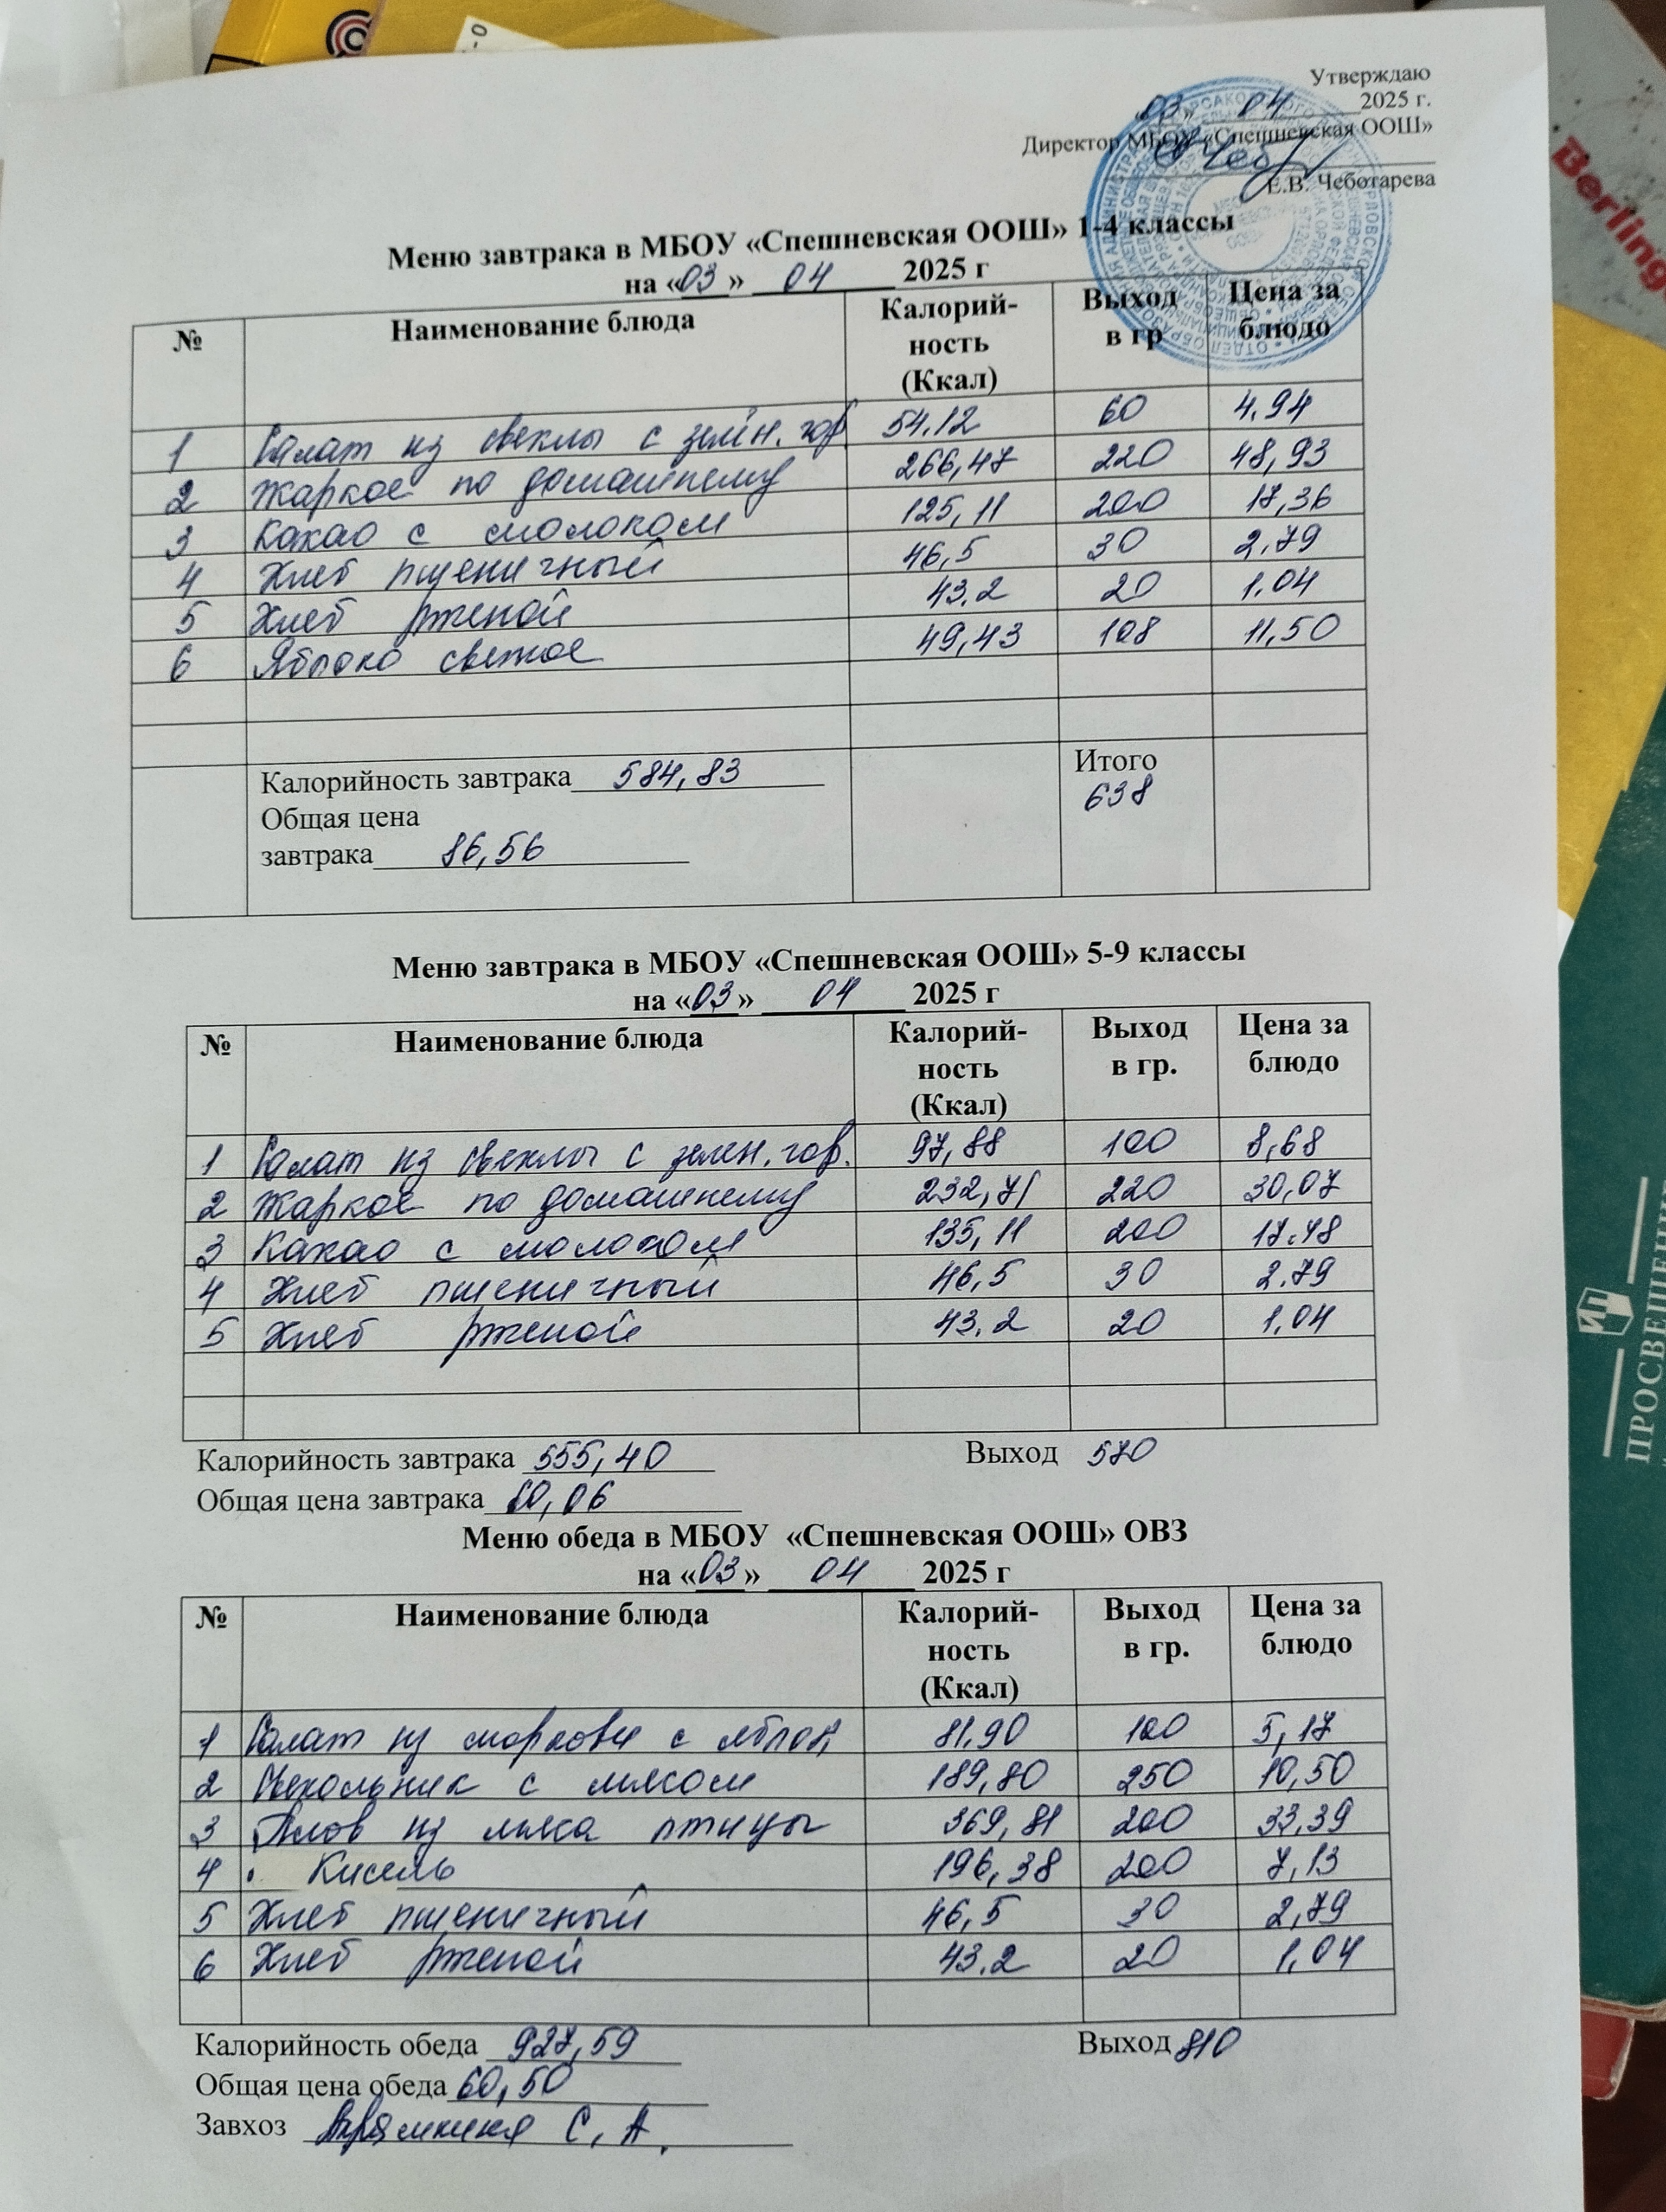 Утверждаю
«03» 04 2025 г.
Директор МБОУ «Спешневская ООШ»
Е.В. Чеботарева
Меню завтрака в МБОУ «Спешневская ООШ» 1-4 классы
на «03» 04 2025 г
№ Наименование блюда Калорий-ность (Ккал) Выход в гр Цена за блюдо
1 Салат из свеклы с зелён. гор 54.12 60 4.94
2 Жаркое по домашнему 266,47 220 48,93
3 Какао с молоком 125,11 200 17,36
4 Хлеб пшеничный 46,5 30 2.79
5 Хлеб ржаной 43.2 20 1.04
6 Яблоко свежое 49,43 108 11,50
Калорийность завтрака 584,83 Итого
Общая цена 638
завтрака 86,56
Меню завтрака в МБОУ «Спешневская ООШ» 5-9 классы
на «03» 04 2025 г
№ Наименование блюда Калорий-ность (Ккал) Выход в гр. Цена за блюдо
1 Салат из свеклы с зелен. гор. 97,88 100 8,68
2 Жаркое по домашнему 232,71 220 30,07
3 Какао с молоком 135,11 200 17.48
4 Хлеб пшеничный 46,5 30 2.79
5 Хлеб ржаной 43,2 20 1,04
Калорийность завтрака 555,40 Выход 570
Общая цена завтрака 60,06
Меню обеда в МБОУ «Спешневская ООШ» ОВЗ
на «03» 04 2025 г
№ Наименование блюда Калорий-ность (Ккал) Выход в гр. Цена за блюдо
1 Салат из моркови с яблок 81,90 100 5,17
2 Свекольник с мясом 189,80 250 10,50
3 Плов из мяса птицы 369,81 200 33,39
4 Кисель 196,38 200 7,13
5 Хлеб пшеничный 46,5 30 2,79
6 Хлеб ржаной 43.2 20 1,04
Калорийность обеда 927,59 Выход 810
Общая цена обеда 60,50
Завхоз С. А.
Berling
ПРОСВЕЩЕНИЕ